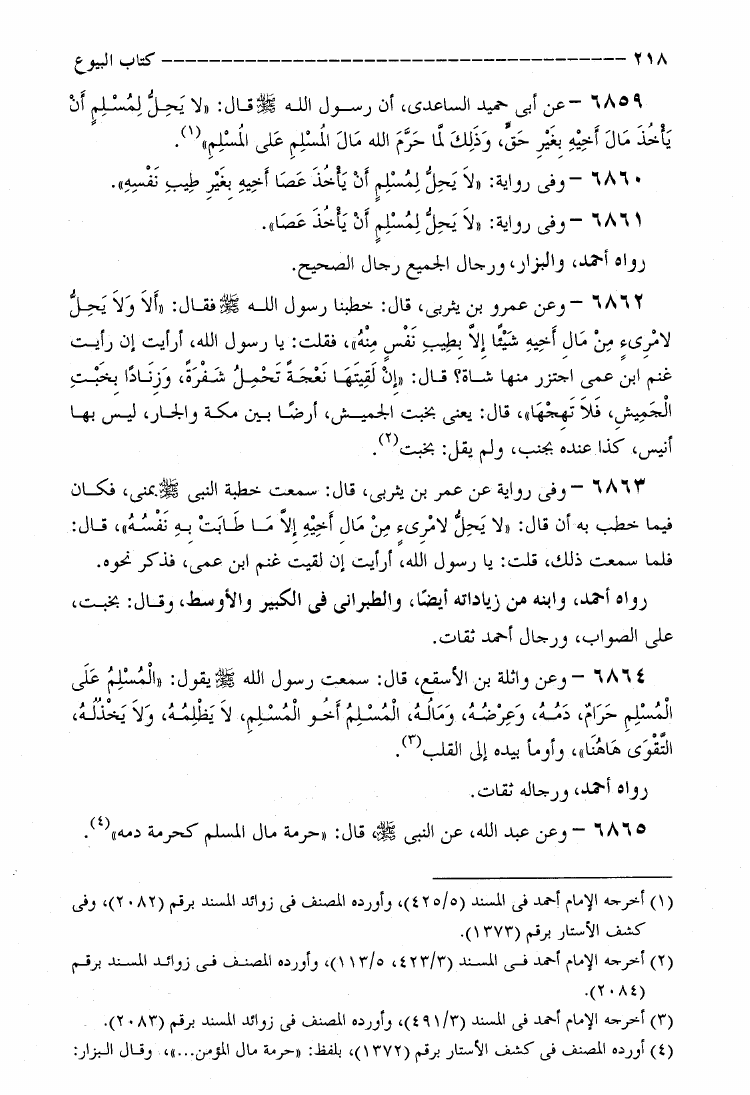 ٢١٨ ------------------------------------------- كتاب البيوع
٦٨٥٩ – عن أبى حميد الساعدى، أن رسول الله ﷺ قال: «لا يَحِلُّ لِمُسْلِمٍ أَنْ
يَأْخُذَ مَالَ أَخِيْهِ بِغَيْرِ حَقٍّ، وَذَلِكَ لَمَّا حَرَّمَ الله مَالَ الْمُسْلِمِ عَلى الْمُسْلِمِ»(١).
٦٨٦٠ – وفى رواية: «لاَ يَحِلُّ لِمُسْلِمٍ أَنْ يَأْخُذَ عَصَا أَخِيْهِ بِغَيْرِ طِيبِ نَفْسِهِ».
٦٨٦١ – وفى رواية: «لاَ يَحِلُّ لِمُسْلِمٍ أَنْ يَأْخُذَ عَصَا».
رواه أحمد، والبزار، ورجال الجميع رجال الصحيح.
٦٨٦٢ – وعن عمرو بن يثربى، قال: خطبنا رسول الله ﷺ فقال: «أَلاَ وَلاَ يَحِلُّ
لامْرِىءٍ مِنْ مَالِ أَخِيهِ شَيْئًا إِلاَّ بِطِيبِ نَفْسٍ مِنْهُ»، فقلت: يا رسول الله، أرأيت إن رأيت
غنم ابن عمى اجتزر منها شاة؟ قال: «إِنْ لَقِيتَهَا نَعْجَةً تَحْمِلُ شَفْرَةً، وَزِنَادًا بِخَبْتِ
الْجَمِيشِ، فَلاَ تَهِجْهَا»، قال: يعنى بخبت الجميش، أرضًا بين مكة والجار، ليس بها
أنيس، كذا عنده بجنب، ولم يقل: بخبت(٢).
٦٨٦٣ – وفى رواية عن عمر بن يثربى، قال: سمعت خطبة النبى ﷺ بمنى، فكان
فيما خطب به أن قال: «لا يَحِلُّ لامْرِىءٍ مِنْ مَالِ أَخِيْهِ إِلاَّ مَا طَابَتْ بِهِ نَفْسُهُ»، قال:
فلما سمعت ذلك، قلت: يا رسول الله، أرأيت إن لقيت غنم ابن عمى، فذكر نحوه.
رواه أحمد، وابنه من زياداته أيضًا، والطبرانى فى الكبير والأوسط، وقال: بخبت،
على الصواب، ورجال أحمد ثقات.
٦٨٦٤ – وعن واثلة بن الأسقع، قال: سمعت رسول الله ﷺ يقول: «الْمُسْلِمُ عَلَى
الْمُسْلِمِ حَرَامٌ، دَمُهُ، وَعِرْضُهُ، وَمَالُهُ، الْمُسْلِمُ أَخُو الْمُسْلِمِ، لاَ يَظْلِمُهُ، وَلاَ يَخْذُلُهُ،
التَّقْوَى هَاهُنَا»، وأومأ بيده إلى القلب(٣).
رواه أحمد، ورجاله ثقات.
٦٨٦٥ – وعن عبد الله، عن النبى ﷺ، قال: «حرمة مال المسلم كحرمة دمه»(٤).
(١) أخرجه الإمام أحمد فى المسند (٤٢٥/٥)، وأورده المصنف فى زوائد المسند برقم (٢٠٨٢)، وفى
كشف الأستار برقم (١٣٧٣).
(٢) أخرجه الإمام أحمد فى المسند (٤٢٣/٣، ١١٣/٥)، وأورده المصنف فى زوائد المسند برقم
(٢٠٨٤).
(٣) أخرجه الإمام أحمد فى المسند (٤٩١/٣)، وأورده المصنف فى زوائد المسند برقم (٢٠٨٣).
(٤) أورده المصنف فى كشف الأستار برقم (١٣٧٢)، بلفظ: «حرمة مال المؤمن...»، وقال البزار: